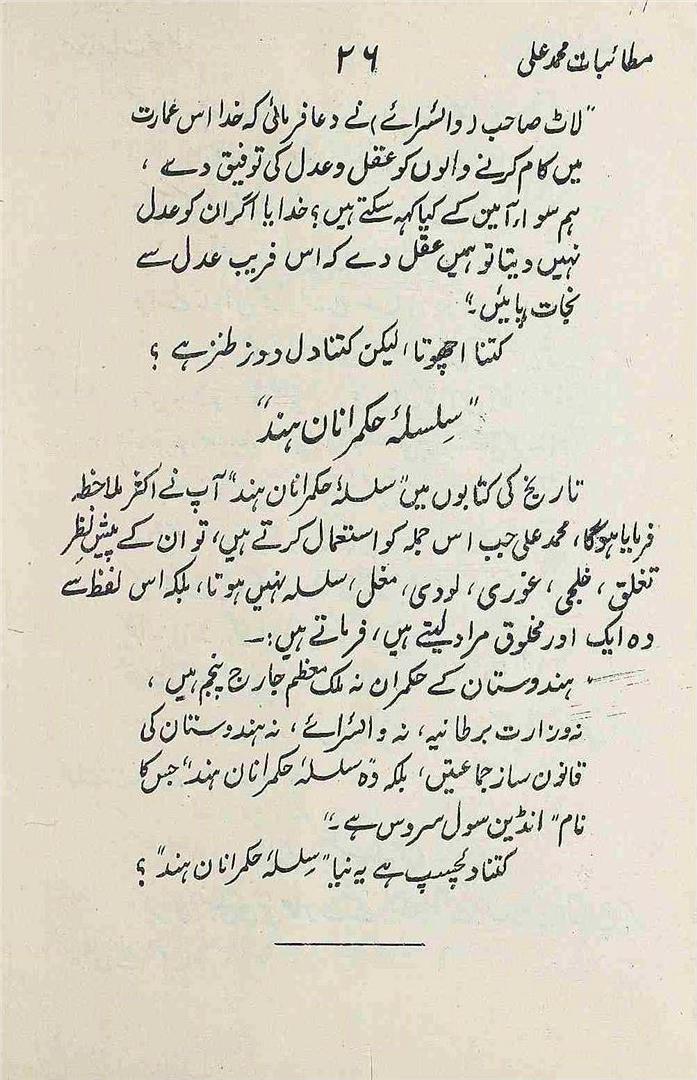 مطائبات محمد علی ۲۶
"لاٹ صاحب (وائسرائے) نے دعا فرمائی کہ خدا اس عمارت
میں کام کرنے والوں کو عقل و عدل کی توفیق دے،
ہم سواء آمین کے کیا کہہ سکتے ہیں؟ خدایا اگر ان کو عدل
نہیں دیتا تو ہمیں عقل دے کہ اس فریب عدل سے
نجات پائیں۔"
کتنا اچھوتا، لیکن کتنا دل دوز طنز ہے؟
"سلسلۂ حکمرانان ہند"
تاریخ کی کتابوں میں "سلسلۂ حکمرانان ہند" آپ نے اکثر ملاخطہ
فرمایا ہوگا، محمد علی جب اس جملہ کو استعمال کرتے ہیں، تو ان کے پیش نظرِ
تغلق، خلجی، غوری، لودی، مغل، سلسلہ نہیں ہوتا، بلکہ اس لفظ سے
وہ ایک اور مخلوق مراد لیتے ہیں، فرماتے ہیں:۔
ہندوستان کے حکمران نہ ملک معظم جارج پنجم ہیں،
نہ وزارت برطانیہ، نہ وائسرائے، نہ ہندوستان کی
قانون ساز جماعتیں، بلکہ وہ "سلسلۂ حکمرانان ہند" جس کا
نام "انڈین سول سروس ہے۔"
کتنا دلچسپ ہے یہ نیا "سلسلۂ حکمرانان ہند"؟